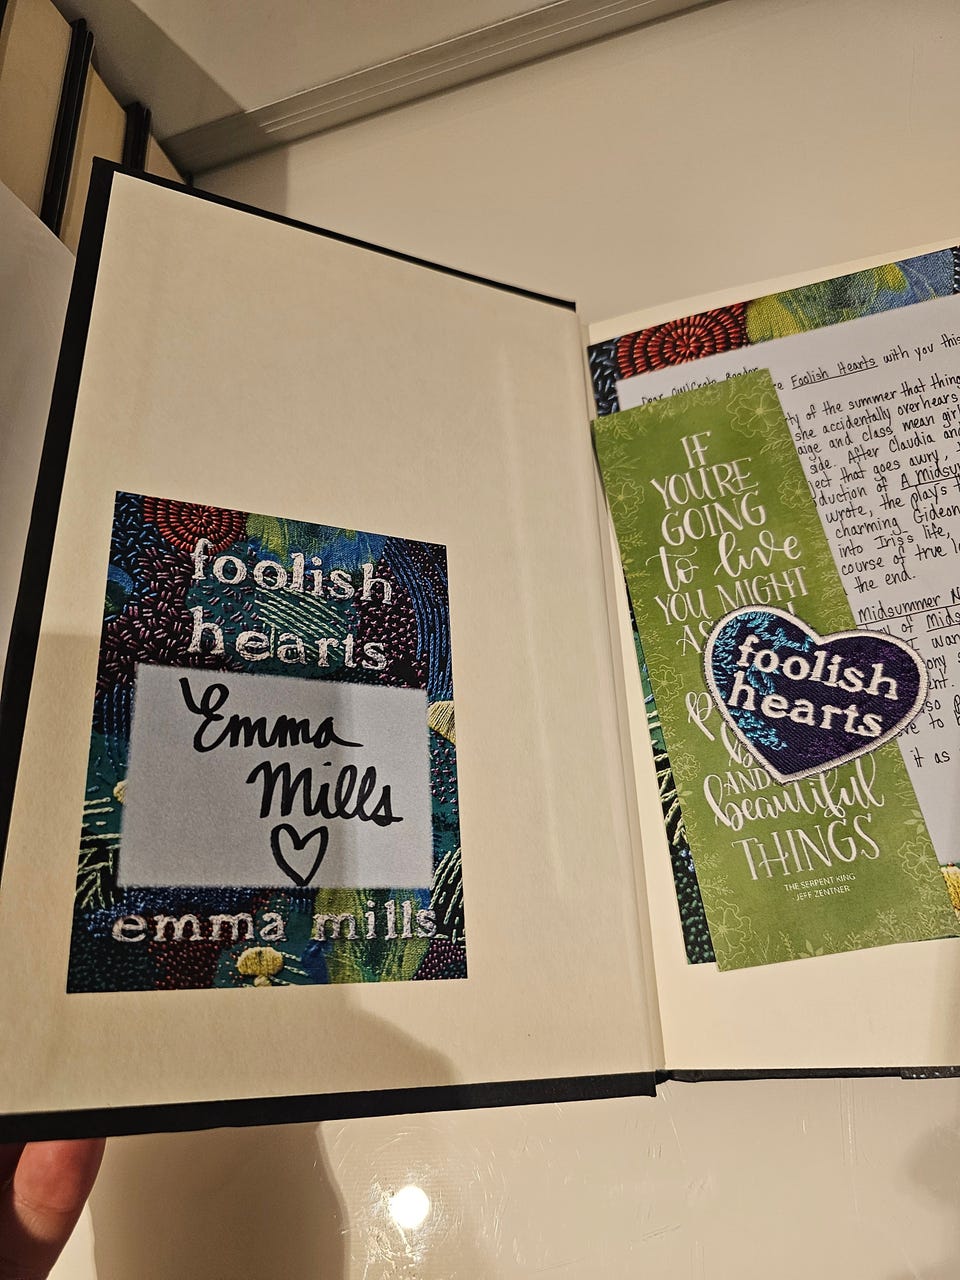 foolish
hearts
Emma
Mills
emma mills
Dear OwlCrate Reader
re Foolish Hearts with you this
ty of the summer that thing
she accidentally overhears
aige and class mean girl
side. After Claudia and
ject that goes awry,
duction of A Midsum
wrote, the plays t
charming Gideon
into Iris's life,
course of true l
the end.
Midsummer N
of Mids
I wan
ony s
ent.
so p
ve to b
it as
IF
YOU'RE
GOING
to live
YOU MIGHT
AS
AND
beautiful
THINGS
THE SERPENT KING
JEFF ZENTNER
foolish
hearts